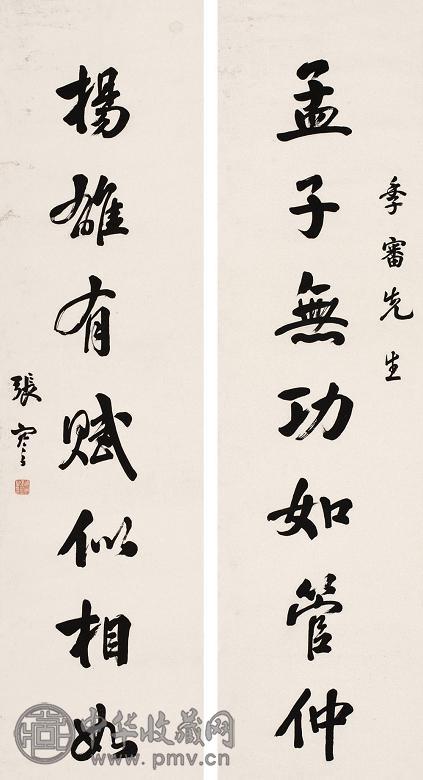 季審先生
孟子無功如管仲
楊雄有賦似相如
張謇
中华收藏网
www.pmv.cn